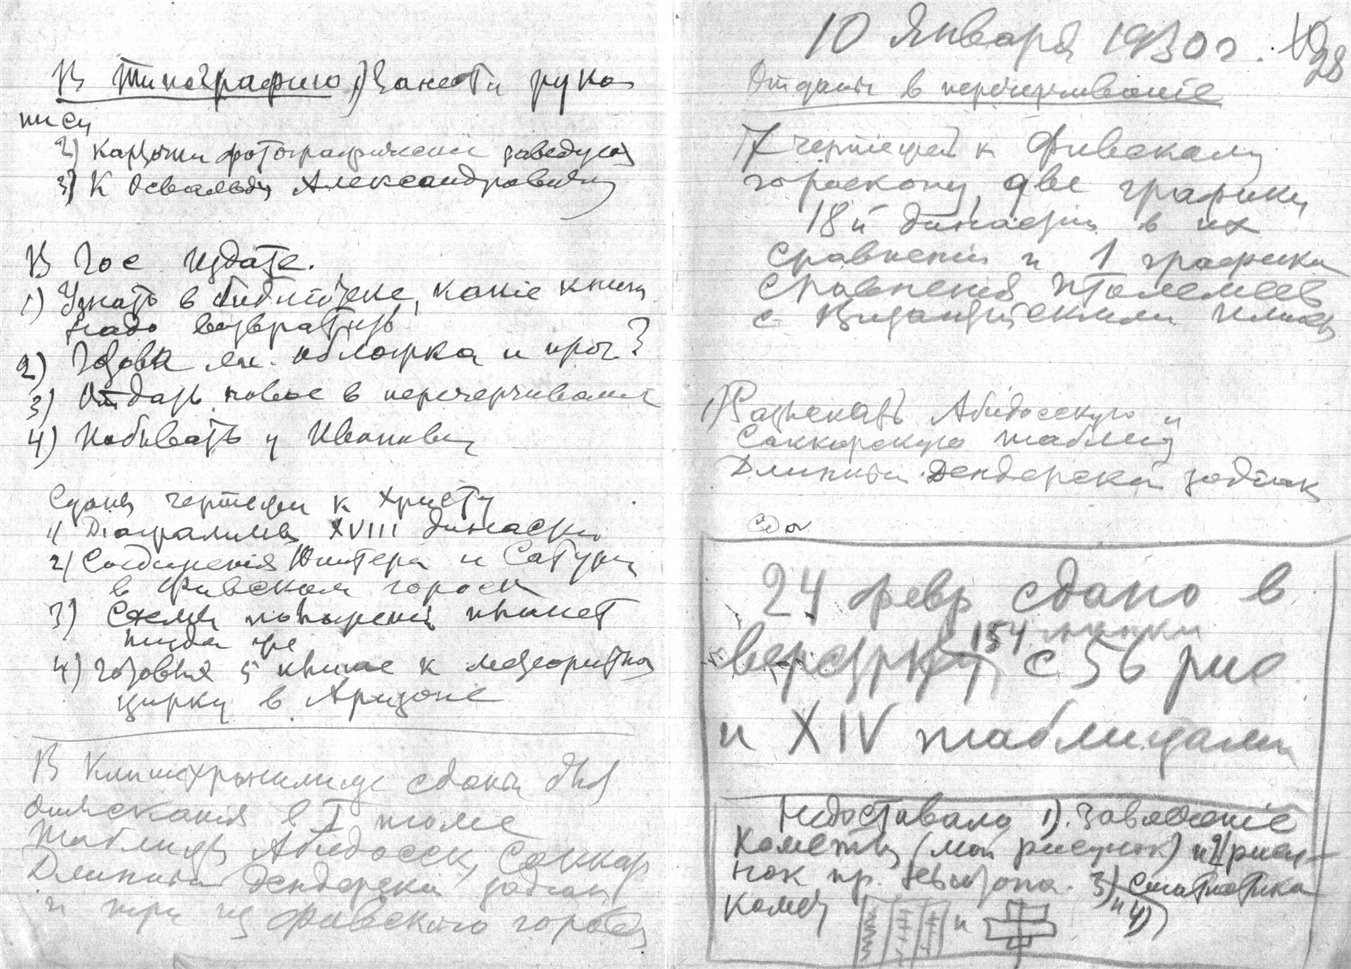 В Типографию 1) Занести руко
писи
2) фотографическ заведую
3) К Освальду Александровичу
В Гос издате.
1) Узнать в библиотеке, какіе книги
надо возвратить
2) Готова ли обложка и проч?
3) Отдать новые в перечерчивание
4) Побывать у
чертежи к Христу
1) Діаграммы XVIII династіи
2) Соединенія Юпитера и Сатурн
в Фивском гороск
3) Схемы планет
туда же
4) 5 к метеоритно
цирку в Аризоне
В Книгохранилище сданы для
отыскания в I томе
таблицы Абидосск, Саккар
Длинный Дендерский зодіак
и три из Фивского горос
10 Января 1930 г.
28
Отданы в перечерчиваніе
7 чертежей к Фивскому
гороскопу, две графики
18й династіи в их
сравненіи и 1 графика
сравненія Птолемеев
с Византійскими
1) Разыскать Абидосскую и
Саккарскую таблиц
Длинный Дендерский зодіак
24 февр сдано в
верстку 154 с 56 рис
и XIV таблицами
Недоставало 1)
Кометы (мой рисунок) и 2) рису-
нок пр. Ньютона. 3) Статистика
комет и 4)
и